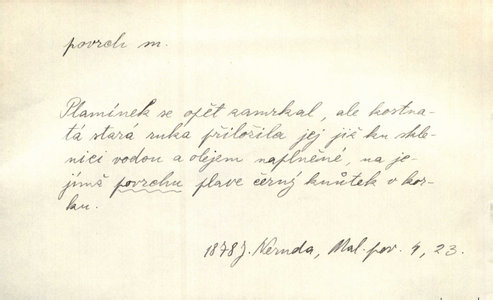 povrch m.
Plamínek se opět zamrkal, ale kostna-
tá stará ruka přiložila jej již ku skle-
nici vodou a olejem naplněné, na je-
jímž povrchu plave černý knůtek v kor-
ku.
1878 J. Neruda, Mal. pov. 4, 23.